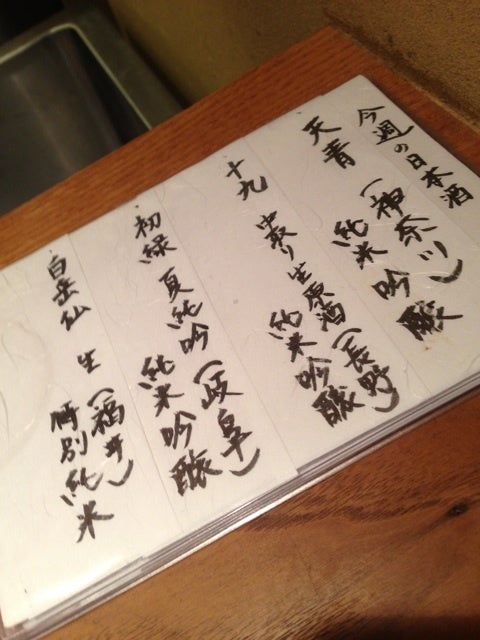 今週の日本酒
天青（神奈川）
純米吟醸
十九 中取り生原酒（長野）
純米吟醸
初緑 夏純吟（岐阜）
純米吟醸
白岳仙 生（福井）
特別純米